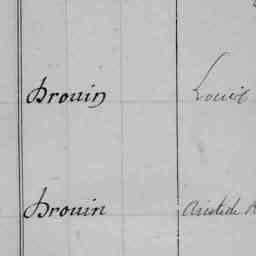 Drouin Louis
Drouin Aristide